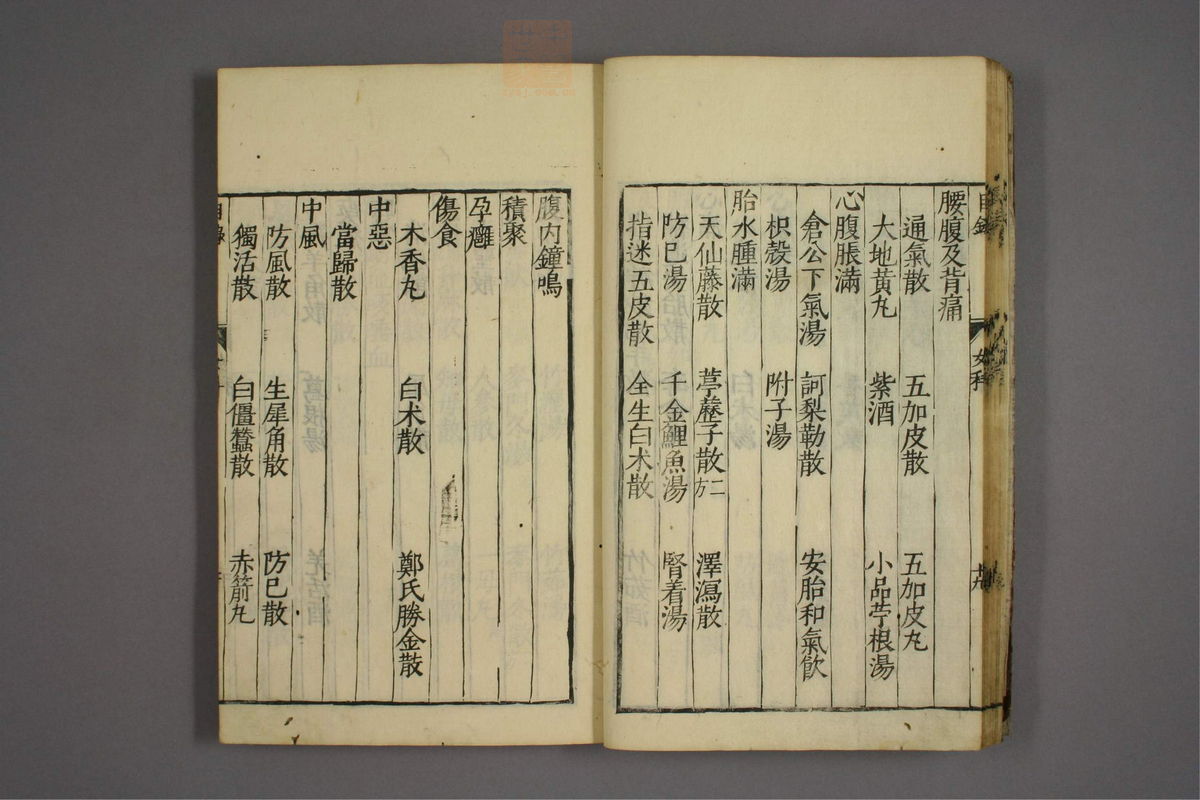 目錄
女科
腰腹及背痛
通氣散 五加皮散 五加皮丸
大地黃丸 紫酒 小品苧根湯
心腹脹滿
倉公下氣湯 訶梨勒散 安胎和氣飲
枳殼湯 附子湯
胎水腫滿
天仙藤散 葶藶子散二方 澤瀉散
防巳湯 千金鯉魚湯 腎着湯
指迷五皮散 全生白术散
腹内鐘鳴
積聚
孕癰
傷食
木香丸 白术散 鄭氏勝金散
中惡
當歸散
中風
防風散 生犀角散 防巳散
獨活散 白殭蠶散 赤箭丸